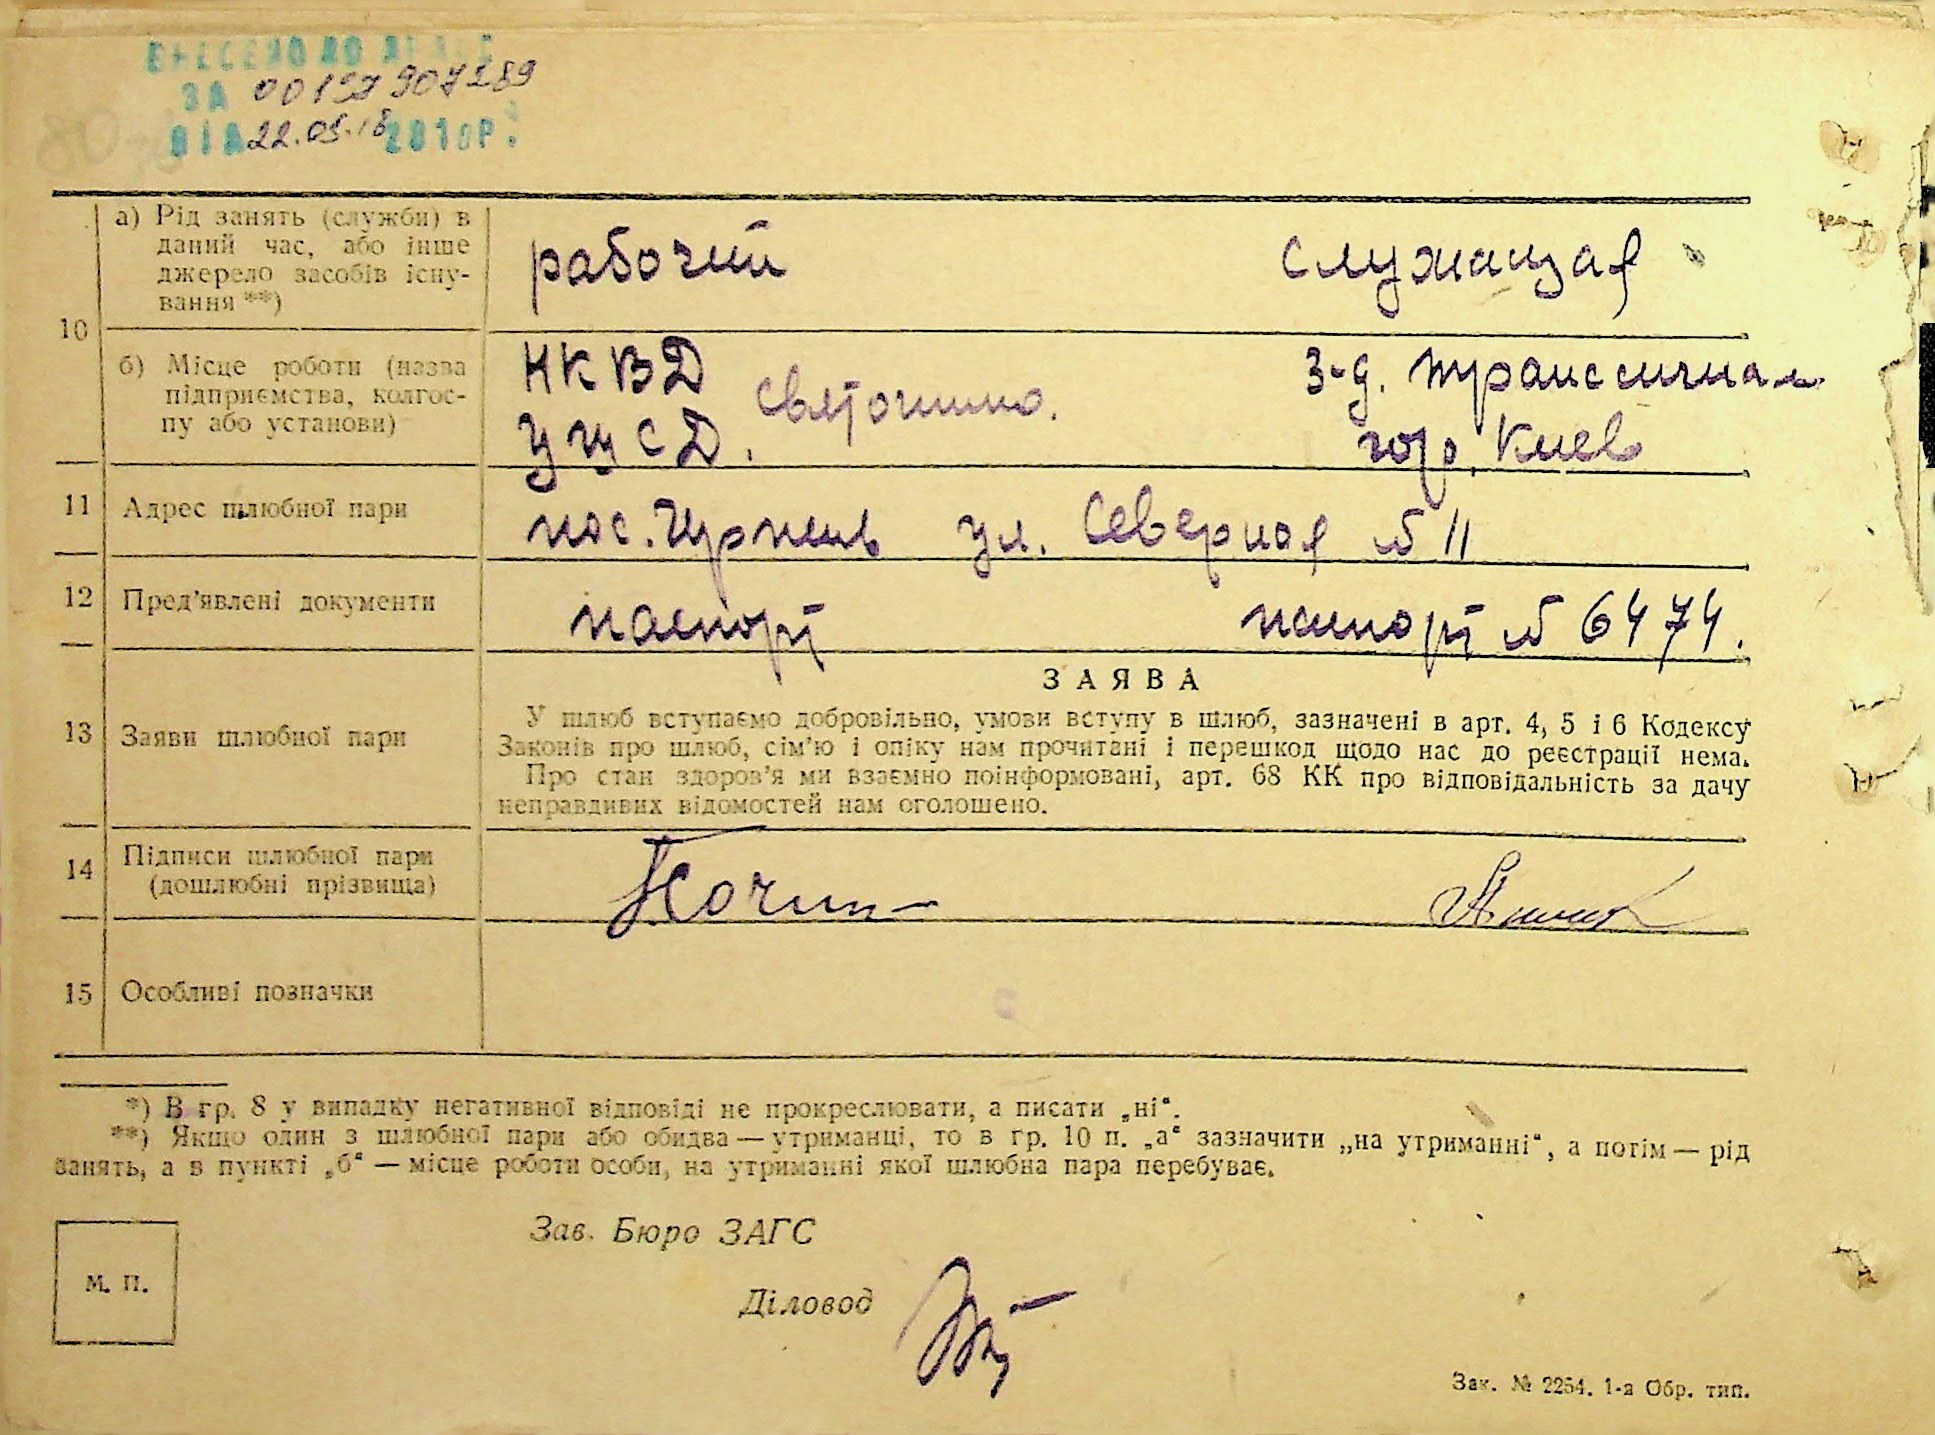 ВНЕСЕНО ДО ДРАЦС
ЗА 00157907289
ВІД 22.05.18 201 Р.
10
а) Рід занять (служби) в
даний час, або інше
джерело засобів існу-
вання **)
рабочий
служащая
б) Місце роботи (назва
підприємства, колгос-
пу або установи)
НКВД
Святошино.
УШСД.
з-д. Транссигнал
гор. Киев
11 Адрес шлюбної пари
пос. Ирпень ул. Северная № 11
12 Пред'явлені документи
паспорт
паспорт № 6474.
ЗАЯВА
13 Заяви шлюбної пари
У шлюб вступаємо добровільно, умови вступу в шлюб, зазначені в арт. 4, 5 і 6 Кодексу
Законів про шлюб, сім'ю і опіку нам прочитані і перешкод щодо нас до реєстрації нема.
Про стан здоров'я ми взаємно поінформовані, арт. 68 КК про відповідальність за дачу
неправдивих відомостей нам оголошено.
14 Підписи шлюбної пари
(дошлюбні прізвища)
15 Особливі позначки
*) В гр. 8 у випадку негативної відповіді не прокреслювати, а писати „ні“.
**) Якщо один з шлюбної пари або обидва — утриманці, то в гр. 10 п. „а“ зазначити „на утриманні“, а потім — рід
занять, а в пункті „б“ — місце роботи особи, на утриманні якої шлюбна пара перебуває.
Зав. Бюро ЗАГС
М. П.
Діловод
Зак. № 2254. 1-а Обр. тип.